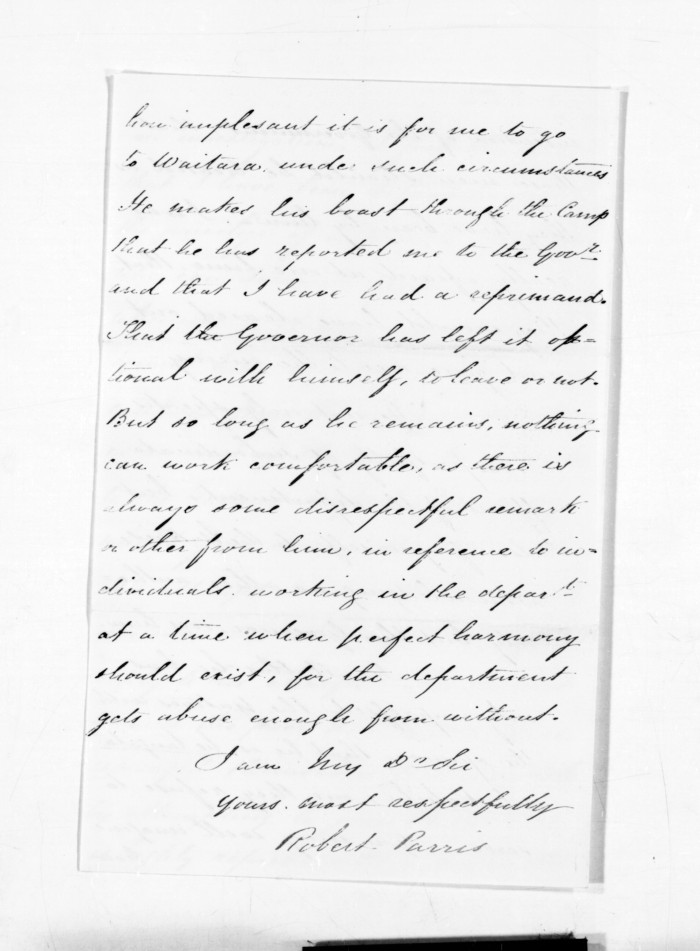 how unplesant it is for me to go
to Waitara under such circumstances
He makes his boast through the Camp
that he has reported me to the Govr.
and that I have had a reprimand.
That the Governor has left it op=
tional with himself, to leave or not.
But so long as he remains, nothing
can work comfortable, as there is
always some disrespectful remark
or other from him, in reference to in=
dividuals working in the depart.
at a time when perfect harmony
should exist, for the department
gets abuse enough from without.
I am My Dr Sir
Yours most respectfully
Robert Parris